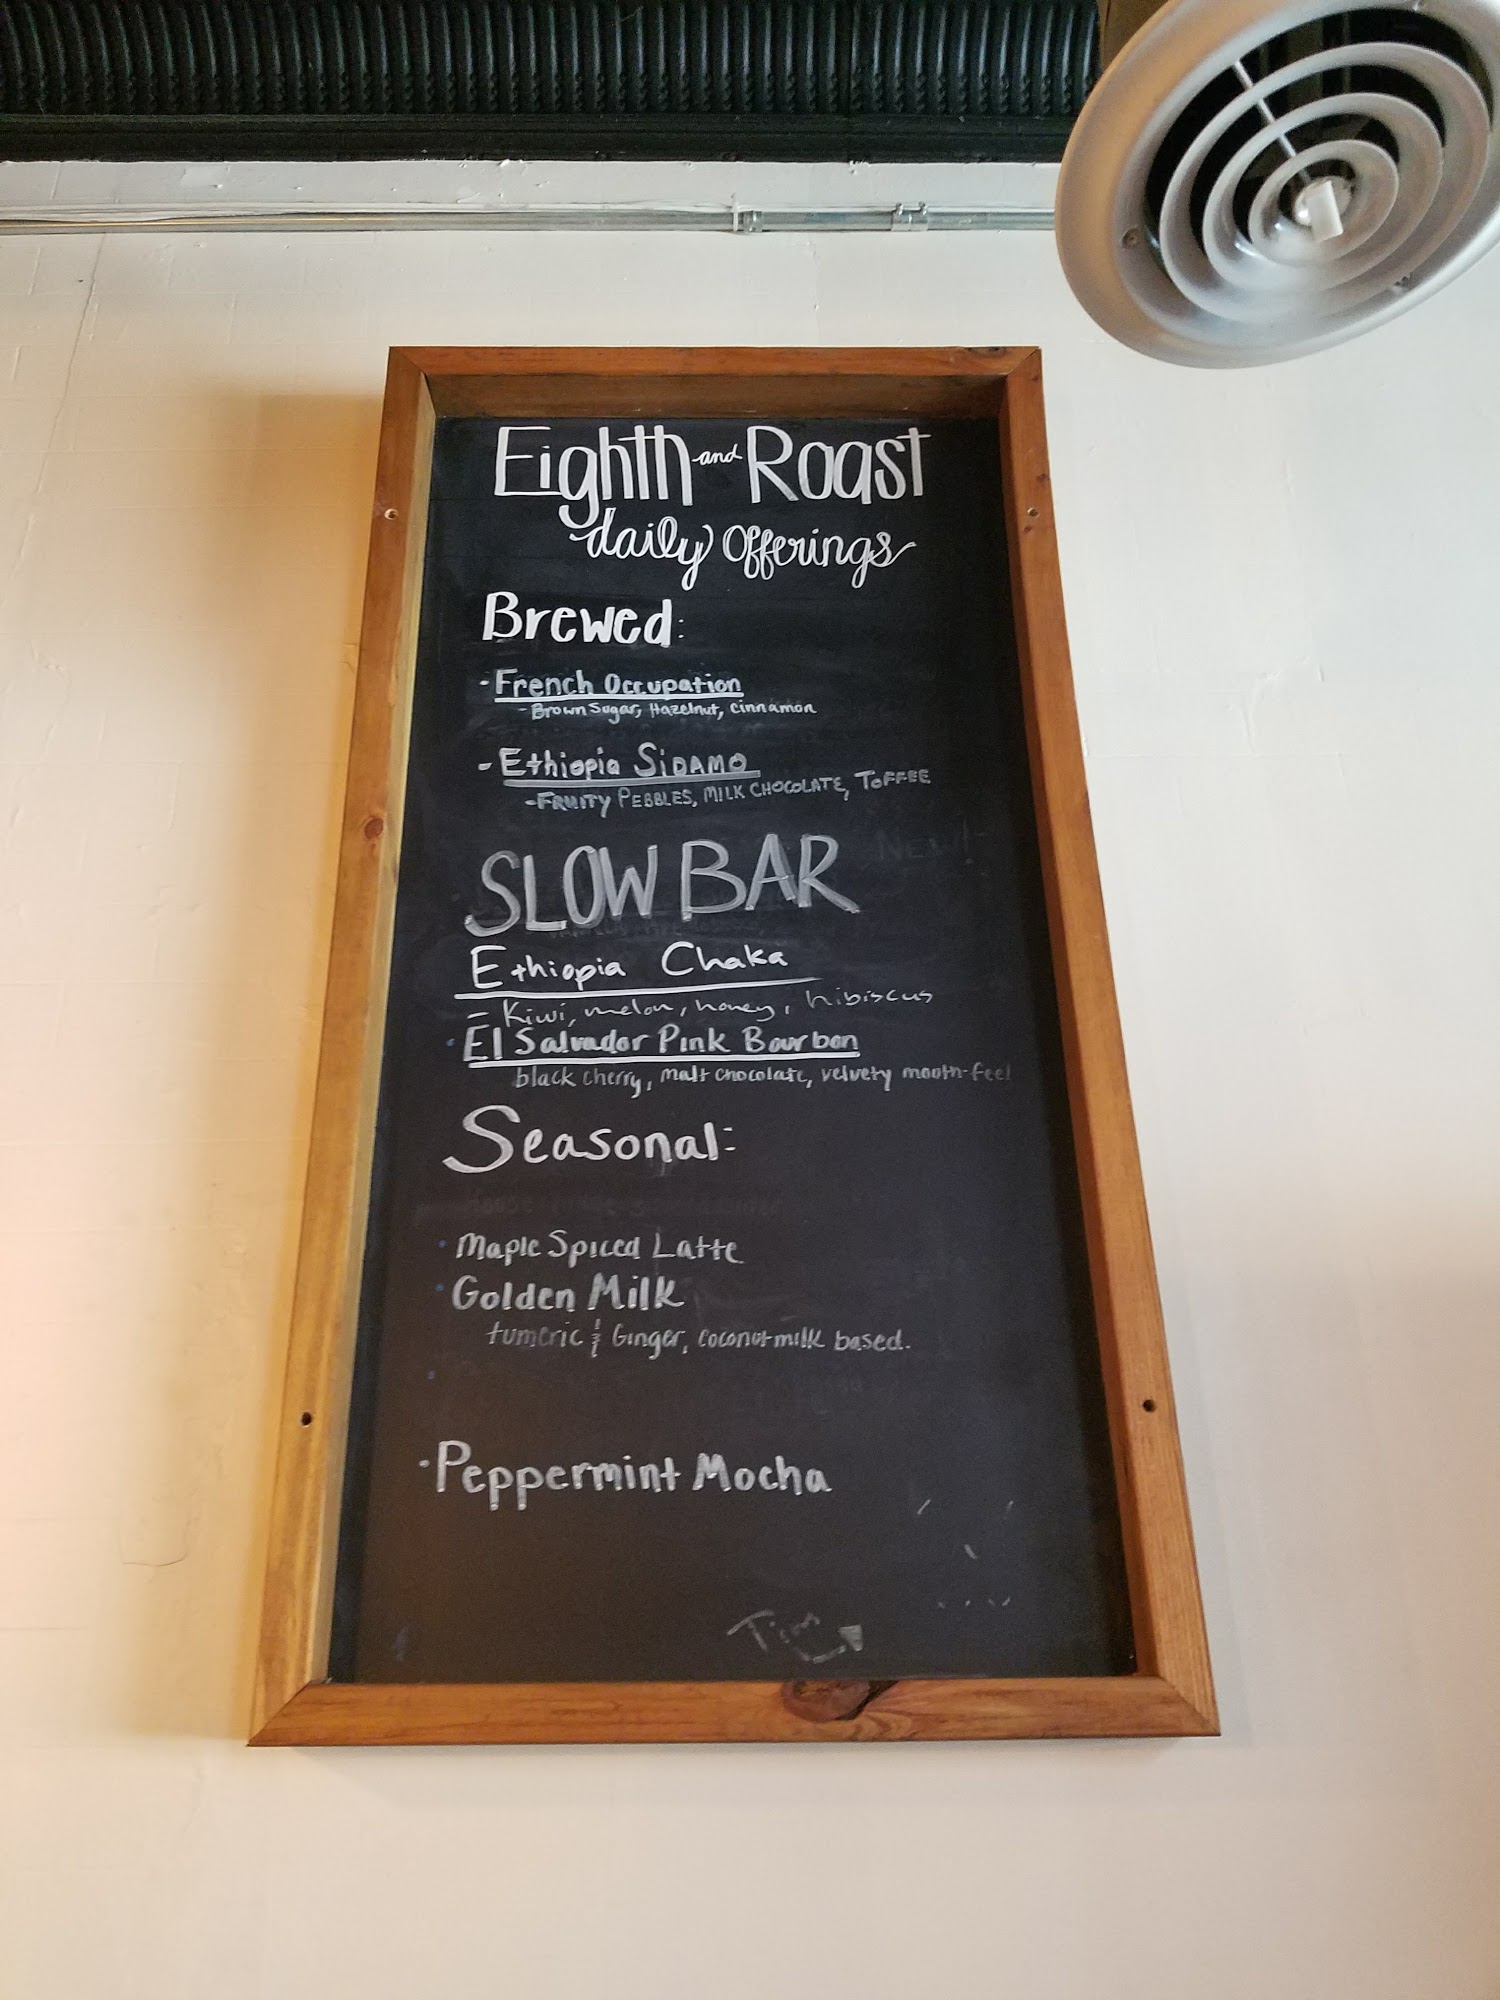 Eighth and Roast
daily offerings
Brewed:
- French Occupation
- Brown Sugar, Hazelnut, cinnamon
- Ethiopia SIDAMO
- FRUITY PEBBLES, MILK CHOCOLATE, TOFFEE
NEW!
SLOW BAR
Ethiopia Chaka
- Kiwi, melon, honey, hibiscus
· El Salvador Pink Bourbon
black cherry, malt chocolate, velvety mouth-feel
Seasonal:
· Maple Spiced Latte
· Golden Milk
tumeric & Ginger, coconut milk based.
· Peppermint Mocha